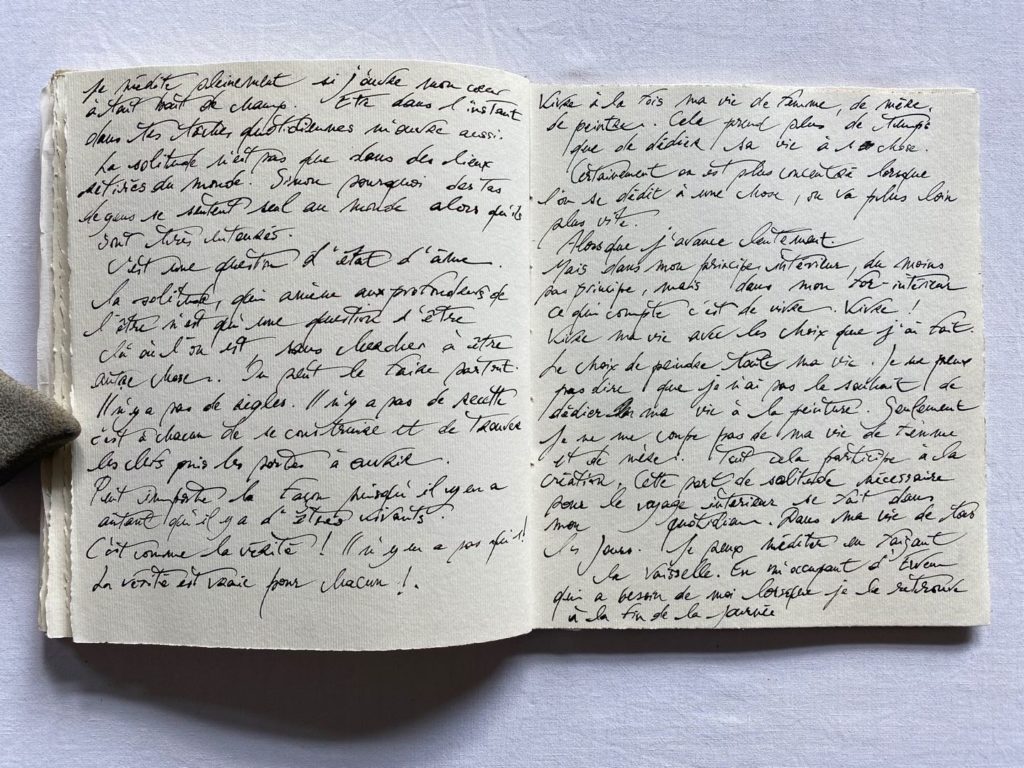 Je médite pleinement si j'ouvre mon cœur
à tout bout de champ. Etre dans l'instant
dans les tâches quotidiennes m'ouvre aussi.
La solitude n'est pas que dans des lieux
retirés du monde. Sinon pourquoi des tas
de gens se sentent seul au monde alors qu'ils
sont très entourés.
C'est une question d'état d'âme.
La solitude, qui amène aux profondeurs de
l'être n'est qu'une question d'être
là où l'on est sans chercher à être
autre chose. On peut le faire partout.
Il n'y a pas de règles. Il n'y a pas de recette
c'est à chacun de se construire et de trouver
les clefs puis les portes à ouvrir.
Peut importe la façon puisqu'il y en a
autant qu'il y a d'êtres vivants.
C'est comme la vérité ! Il n'y en a pas qu'1!
La vérité est vraie pour chacun !.
Vivre à la fois ma vie de femme, de mère,
de peintre. Cela prend plus de temps
que de dédier sa vie à 1 chose.
Certainement on est plus concentré lorsque
l'on se dédit à une chose, on va plus loin
plus vite.
Alors que j'avance lentement.
Mais dans mon principe intérieur, au moins
pas principe, mais dans mon for-intérieur
ce qui compte c'est de vivre. Vivre !
Vivre ma vie avec les choix que j'ai fait.
Le choix de peindre toute ma vie. Je ne peux
pas dire que je n'ai pas le souhait de
dédier ma vie à la peinture. Seulement
je ne me coupe pas de ma vie de femme
et de mère. Tout cela participe à la
création. Cette part de solitude nécessaire
pour le voyage intérieur se fait dans
mon quotidien. Dans ma vie de tous
les jours. Je peux méditer en faisant
la vaisselle. En m'occupant d'
qui a besoin de moi lorsque je la retrouve
à la fin de la journée